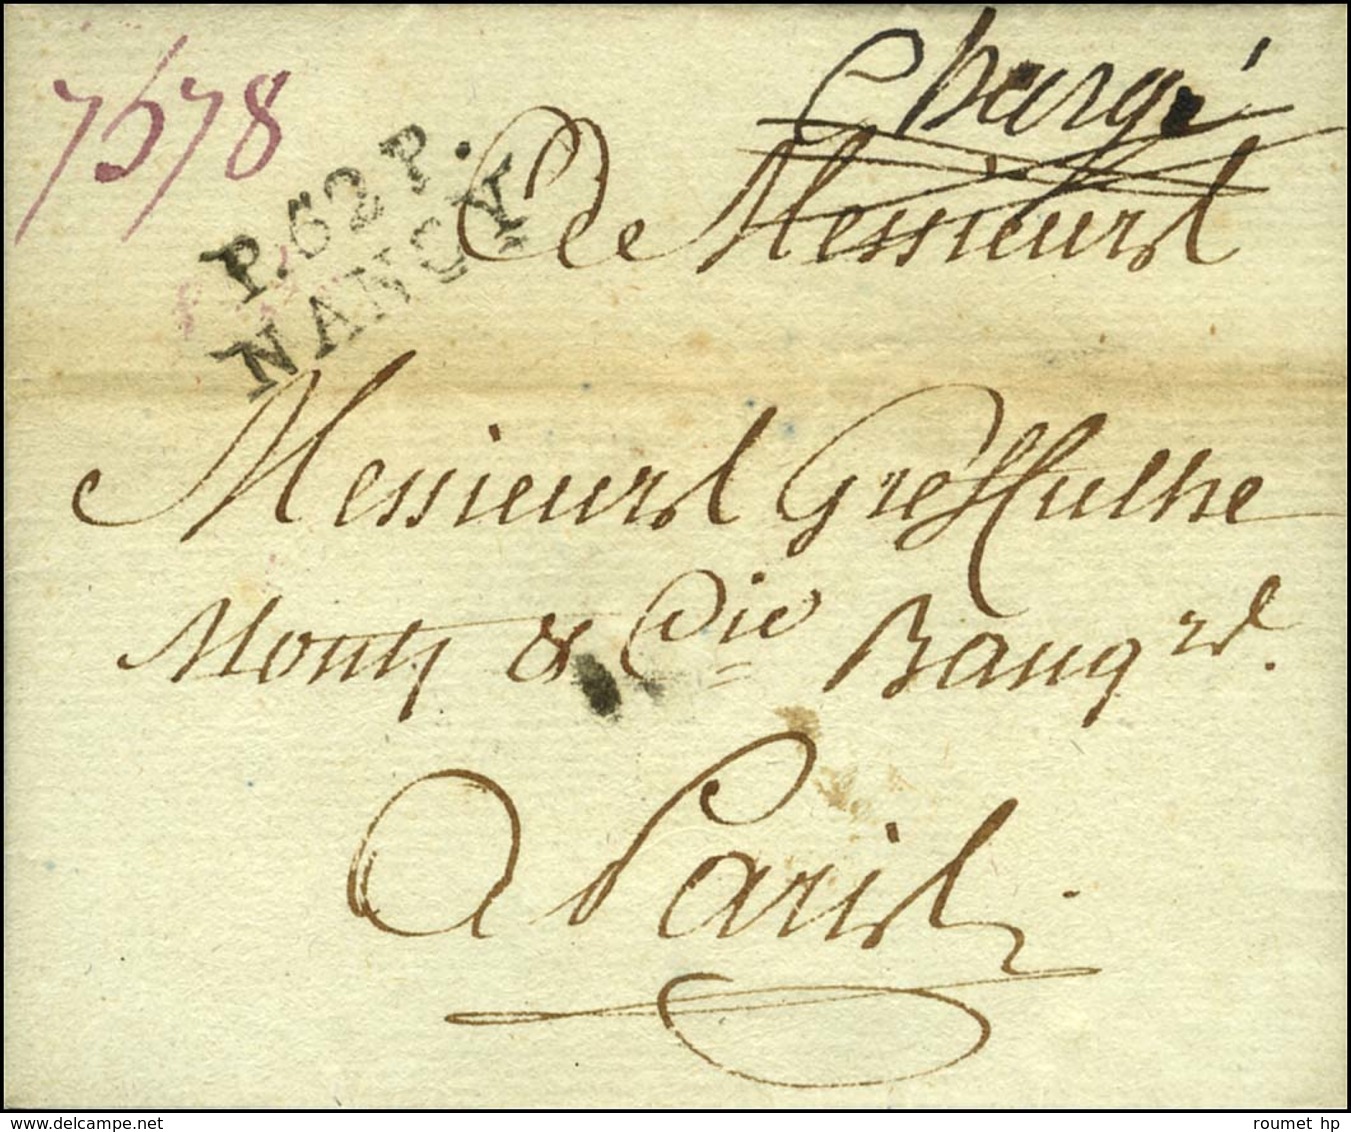 Chargé
7678
P.62P.
NANCY
A Messieurs
Messieurs Greffulhe
Montz & Cie Banqrs.
A Paris
delcampe.net
roumet hp